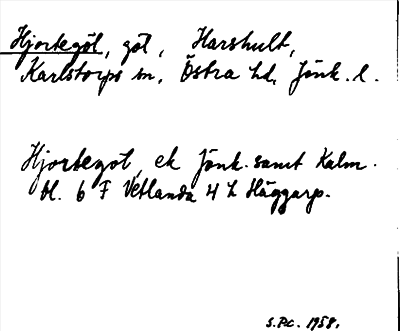 Hjortegöl, göl, Harshult,
Karlstorps sn, Östra hd, Jönk. l.
Hjortegöl, ek Jönk. samt Kalm.
bl. 6 F Vetlanda 4 h Häggarp.
S.P.C. 1958.